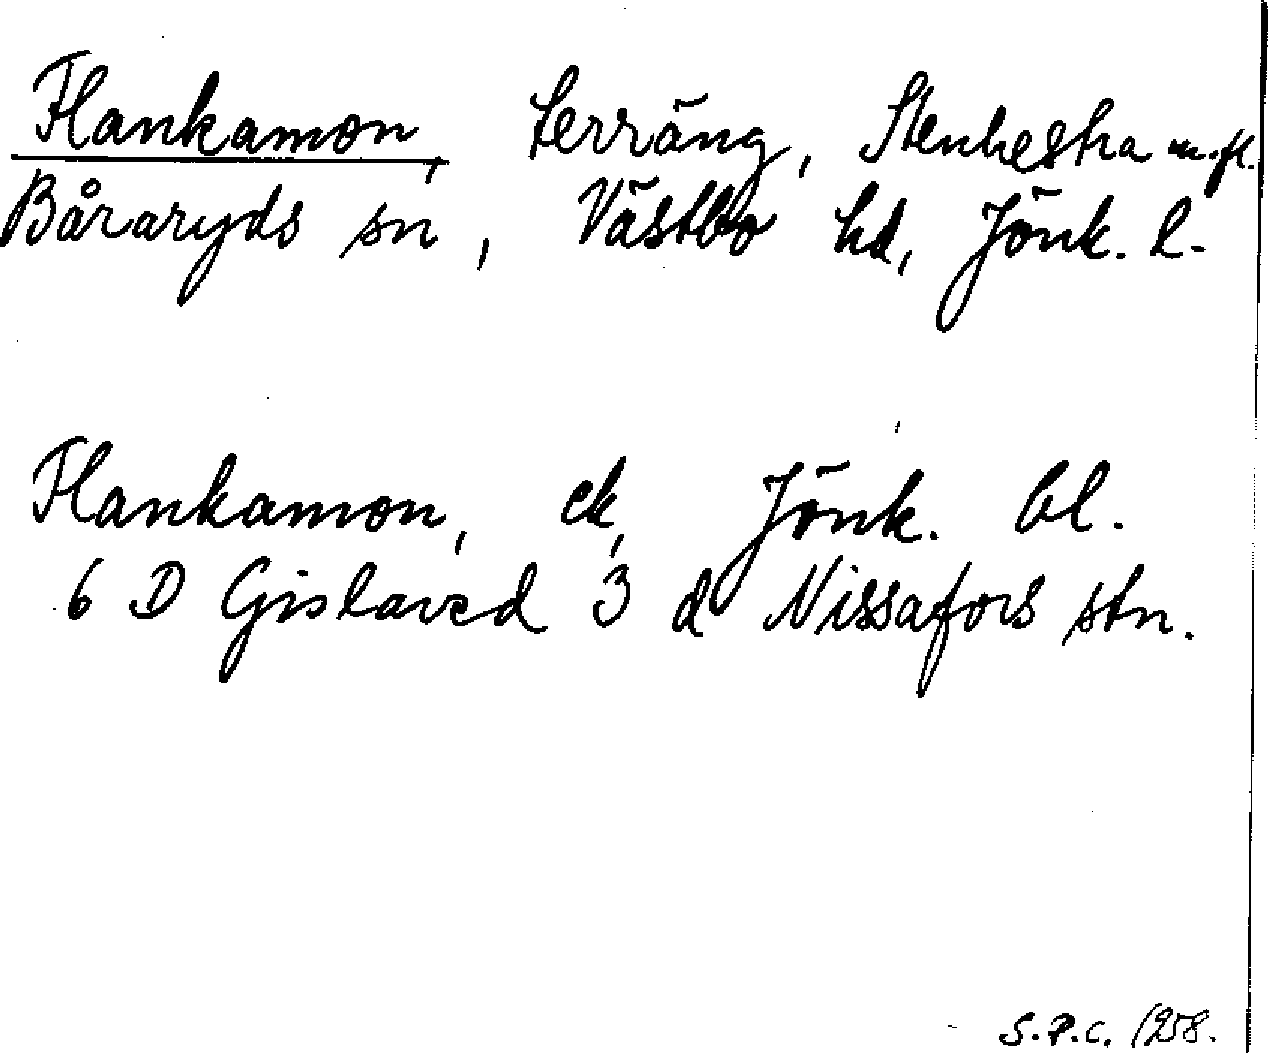 Flankamon, terräng, Stenhestra m.fl.
Båraryds sn, Västbo hd, Jönk. l.
Flankamon, ek, Jönk. bl.
6 D Gislaved 3 d Nissafors stn.
S.P.C. 1958.